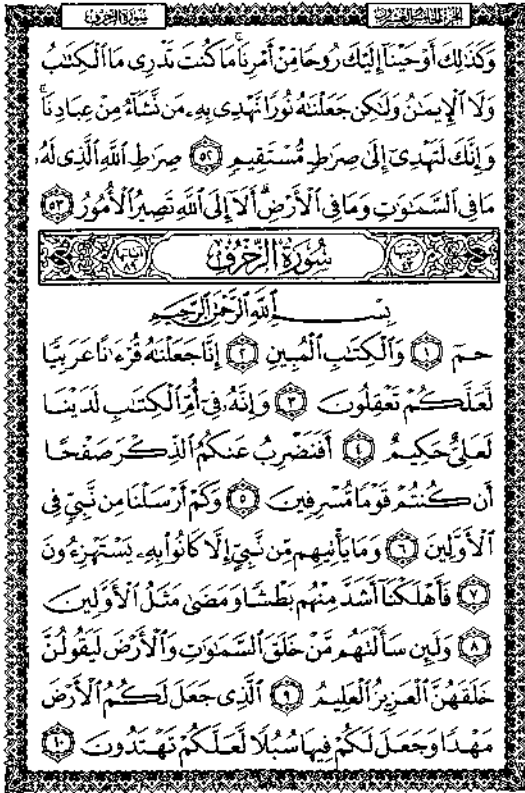 سُورَةُ الزُّخْرُفِ
الجُزْءُ الخَامِسُ وَالعِشْرُونَ
وَكَذَٰلِكَ أَوْحَيْنَآ إِلَيْكَ رُوحًا مِّنْ أَمْرِنَا ۚ مَا كُنتَ تَدْرِى مَا ٱلْكِتَٰبُ
وَلَا ٱلْإِيمَٰنُ وَلَٰكِن جَعَلْنَٰهُ نُورًا نَّهْدِى بِهِۦ مَن نَّشَآءُ مِنْ عِبَادِنَا ۚ
وَإِنَّكَ لَتَهْدِىٓ إِلَىٰ صِرَٰطٍ مُّسْتَقِيمٍ ٥٢ صِرَٰطِ ٱللَّهِ ٱلَّذِى لَهُۥ
مَا فِى ٱلسَّمَٰوَٰتِ وَمَا فِى ٱلْأَرْضِ ۗ أَلَآ إِلَى ٱللَّهِ تَصِيرُ ٱلْأُمُورُ ٥٣
ترتيبها ٤٣ سُورَةُ الزُّخْرُفِ آياتها ٨٩
بِسْمِ ٱللَّهِ ٱلرَّحْمَٰنِ ٱلرَّحِيمِ
حمٓ ١ وَٱلْكِتَٰبِ ٱلْمُبِينِ ٢ إِنَّا جَعَلْنَٰهُ قُرْءَٰنًا عَرَبِيًّا
لَّعَلَّكُمْ تَعْقِلُونَ ٣ وَإِنَّهُۥ فِىٓ أُمِّ ٱلْكِتَٰبِ لَدَيْنَا
لَعَلِىٌّ حَكِيمٌ ٤ أَفَنَضْرِبُ عَنكُمُ ٱلذِّكْرَ صَفْحًا
أَن كُنتُمْ قَوْمًا مُّسْرِفِينَ ٥ وَكَمْ أَرْسَلْنَا مِن نَّبِىٍّ فِى
ٱلْأَوَّلِينَ ٦ وَمَا يَأْتِيهِم مِّن نَّبِىٍّ إِلَّا كَانُوا۟ بِهِۦ يَسْتَهْزِءُونَ
٧ فَأَهْلَكْنَآ أَشَدَّ مِنْهُم بَطْشًا وَمَضَىٰ مَثَلُ ٱلْأَوَّلِينَ
٨ وَلَئِن سَأَلْتَهُم مَّنْ خَلَقَ ٱلسَّمَٰوَٰتِ وَٱلْأَرْضَ لَيَقُولُنَّ
خَلَقَهُنَّ ٱلْعَزِيزُ ٱلْعَلِيمُ ٩ ٱلَّذِى جَعَلَ لَكُمُ ٱلْأَرْضَ
مَهْدًا وَجَعَلَ لَكُمْ فِيهَا سُبُلًا لَّعَلَّكُمْ تَهْتَدُونَ ١٠